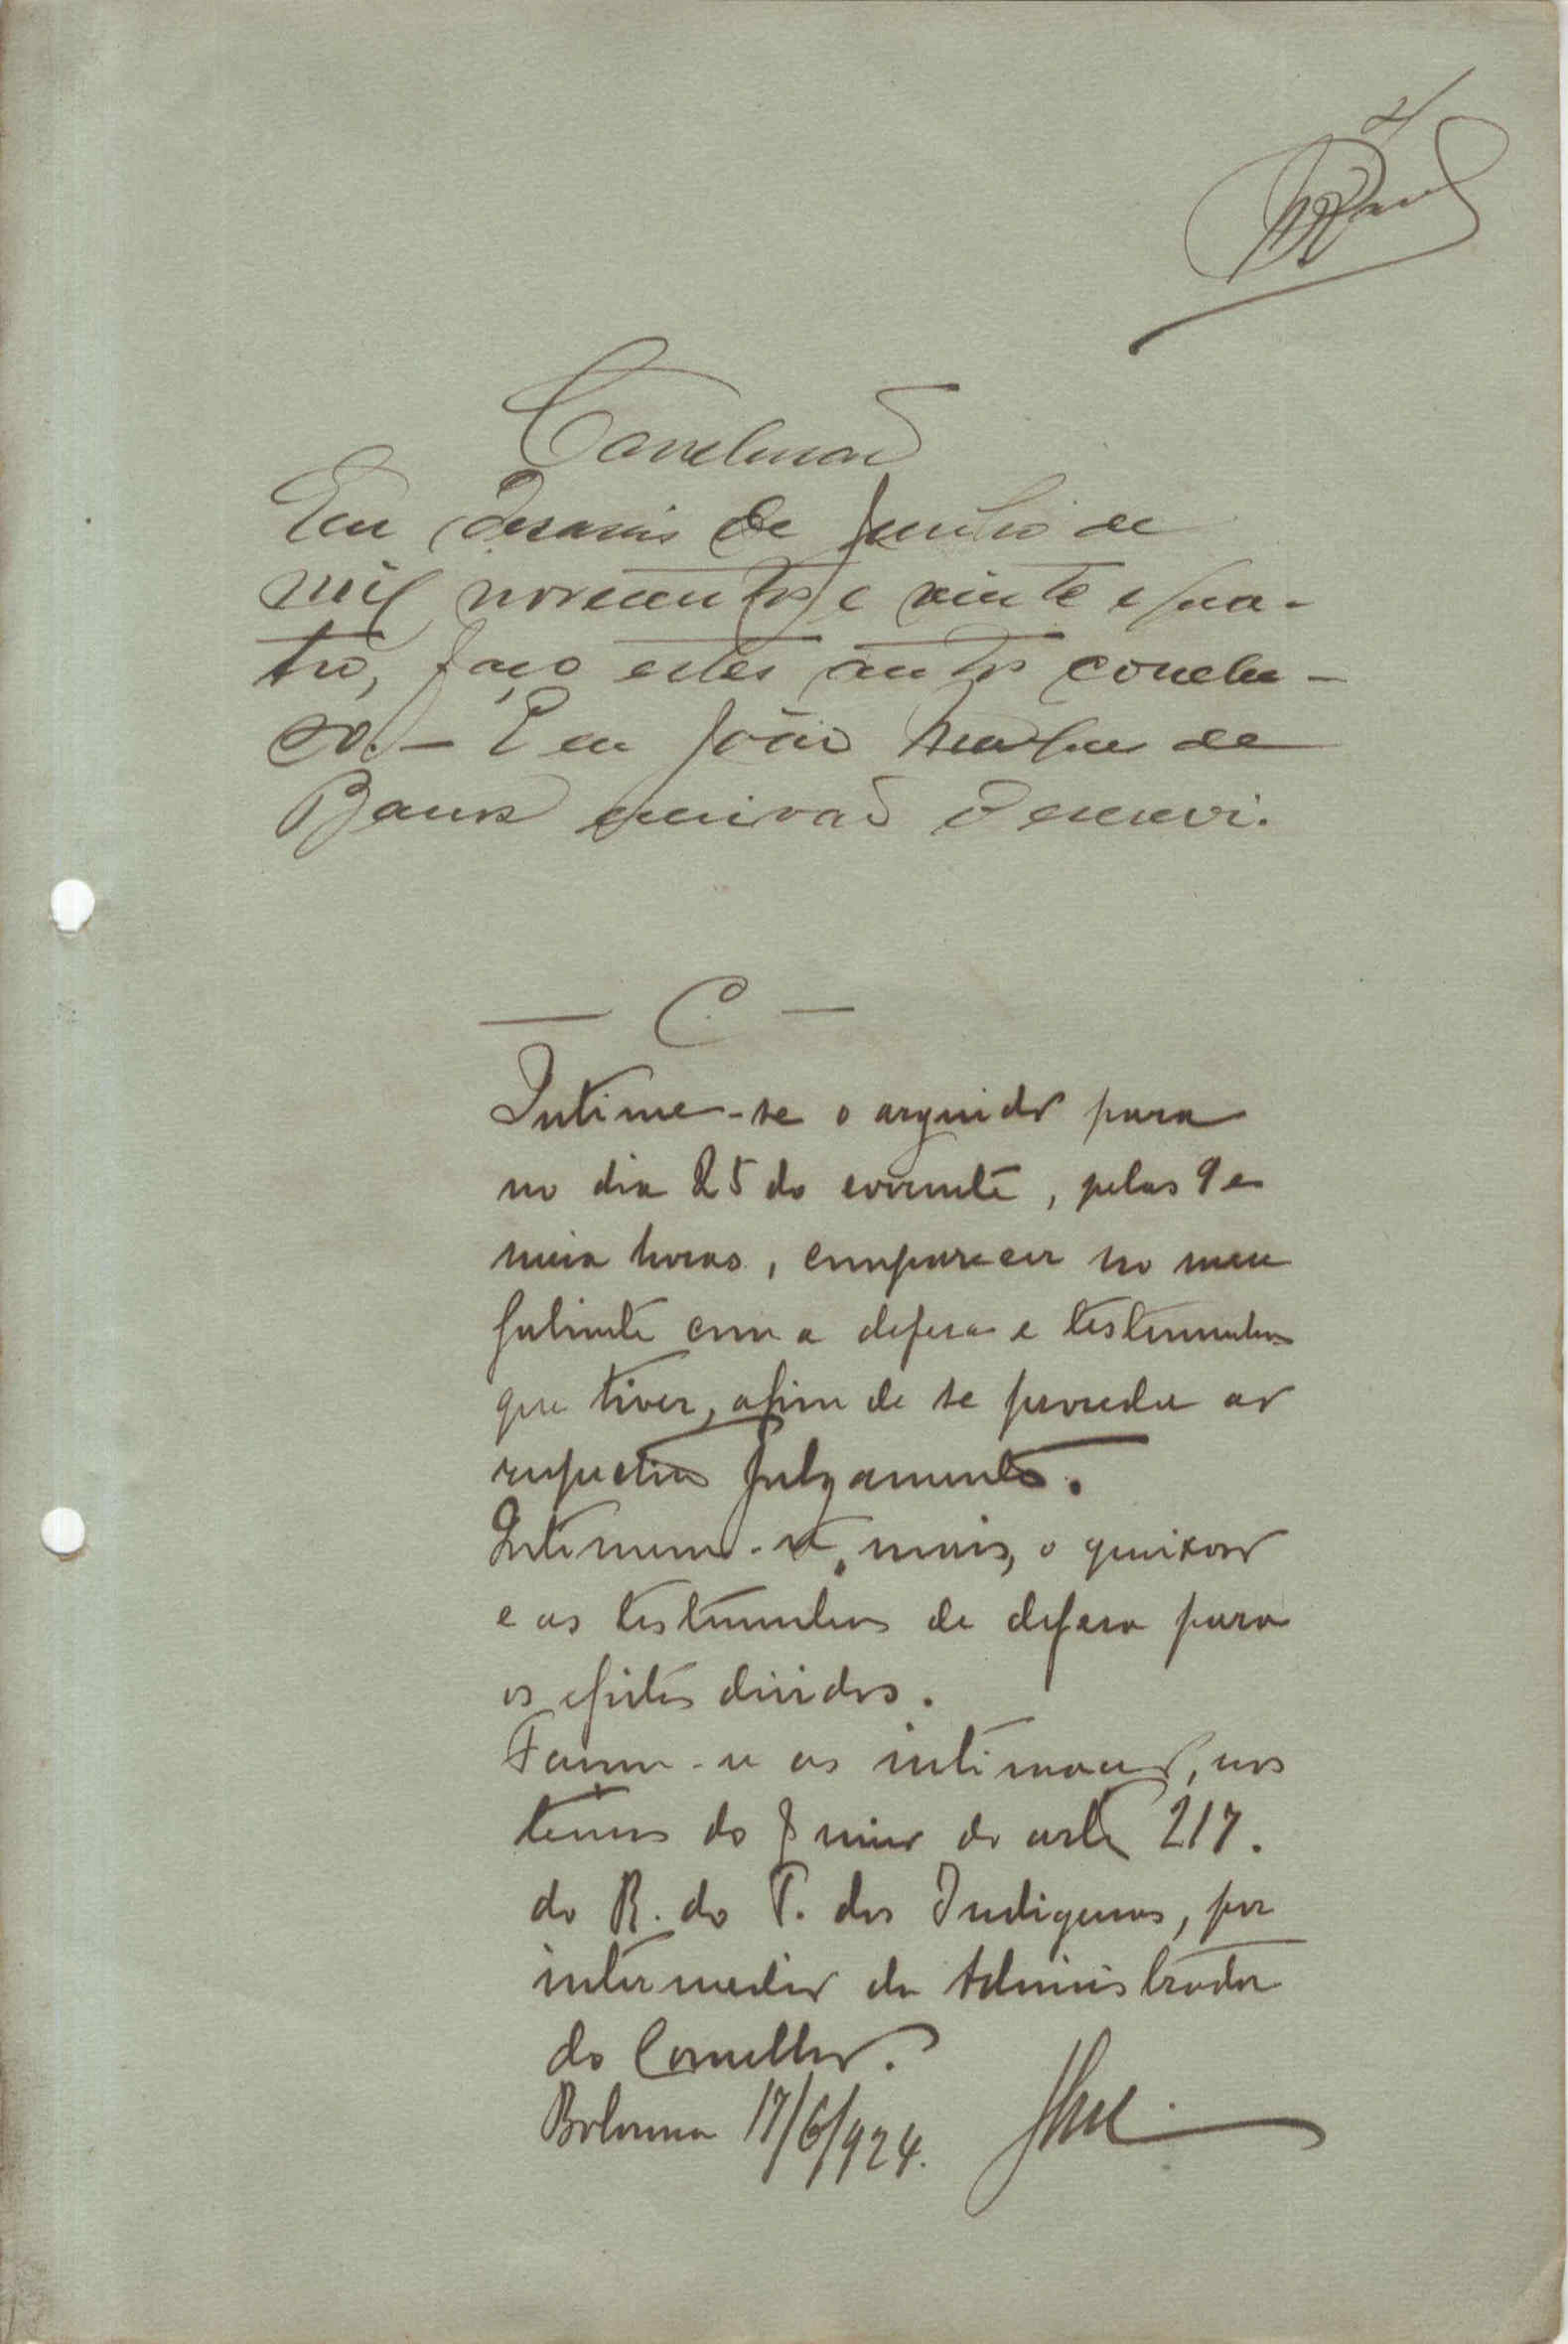 Conclusão
Em desaseis de Junho de
mil novecentos e vinte e qua-
tro, faço estes autos conclu-
sos. – E eu João de
Barros escrivão o escrevi.
— C —
Intime-se o arguido para
no dia 25 do corrente, pelas 9 e
meia horas, comparecer no meu
gabinete com a defesa e testemunhas
que tiver, afim de se proceder ao
respectivo julgamento.
Intimem-se, mais, o queixoso
e as testemunhas de defesa para
os efeitos devidos.
Façam-se as intimações, nos
termos do § unico do artº 217.
do R. do T. dos Indigenas, por
intermedio do Administrador
do Concelho.
Bolama 17/6/924.